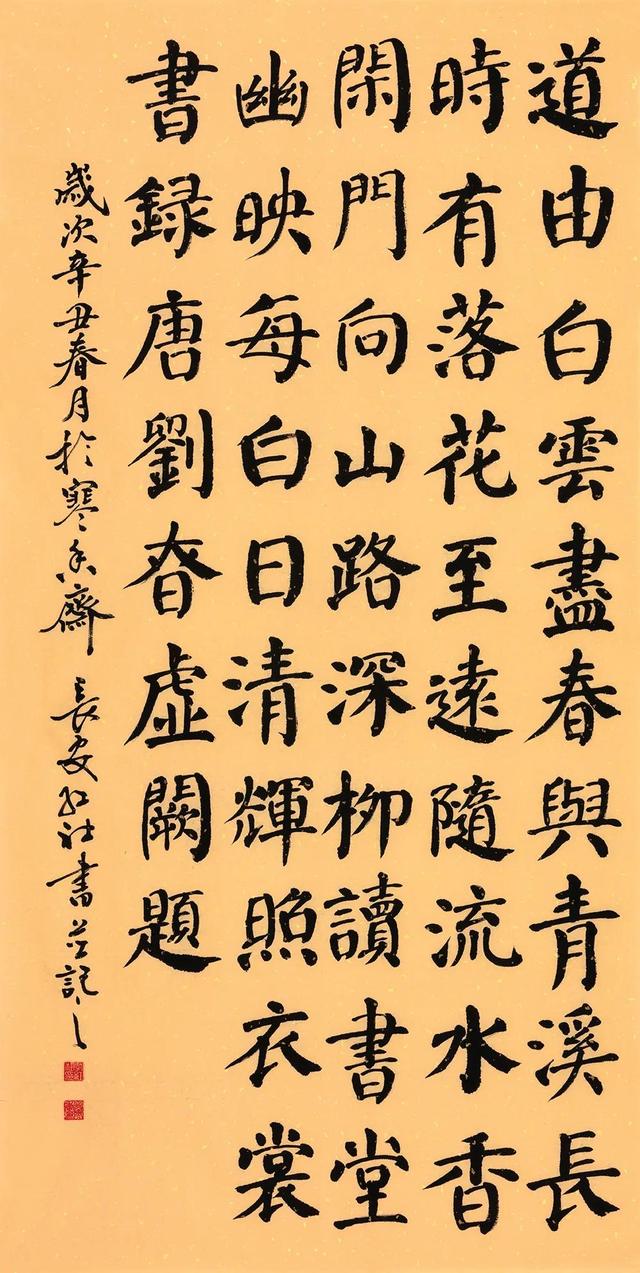 道由白雲盡春與青溪長
時有落花至遠隨流水香
閑門向山路深柳讀書堂
幽映每白日清輝照衣裳
書録唐劉昚虚闕題
歲次辛丑春月於寒香齋 長安社書並記之